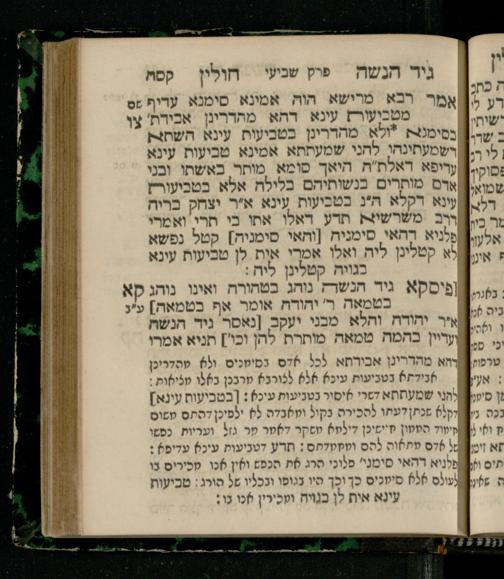 גיד הנשה פרק שביעי חולין קסח
אמר רבא מרישא הוה אמינא סימנא עדיף שם
מטביעות עינא דהא מהדרינן אבידת׳ צו
בסימנא *ולא מהדרינן בטביעות עינא השתא
דשמעתינהו להני שמעתתא אמינא טביעות עינא
עדיפא דאלת״ה היאך סומא מותר באשתו ובני
אדם מותרים בנשותיהם בלילה אלא בטביעות
עינא דקלא ה״נ בטביעות עינא א״ר יצחק בריה
דרב משרשיא תדע דאלו אתו בי תרי ואמרי
פלניא דהאי סימניה [והאי סימניה] קטל נפשא
לא קטלינן ליה ואלו אמרי אית לן טביעות עינא
בגויה קטלינן ליה:
[פיסקא גיד הנשה נוהג בטהורה ואינו נוהג קא
בטמאה ר׳ יהודה אומר אף בטמאה] ע״ב
א״ר יהודה והלא מבני יעקב [נאסר גיד הנשה
ועדיין בהמה טמאה מותרת להן וכו׳] תניא אמרו
דהא מהדרינן אבידתא לכל אדם בסימנים ולא מהדרינן
אבידתא בטביעות עינא אלא לצורבא מרבנן באלו מציאות:
להני שמעתתא דשרי איסור בטביעות עינא: [בטביעות עינא]
דקלא שנתן דעתו להכירה בקול ומאבדה לא ילפינן דהתם משום
חימוד הממון חיישינן דילמא משקר דאמר מר גזל ועריות נפשו
של אדם מתאוה להם ומחמדתם: תדע דטביעות עינא עדיפא:
פלניא דהאי סימני׳ פלוני הרג את הנפש ואין אנו מכירים בו
לעולם אלא סימנים כך וכך היו בגופו ובכליו של הורג: טביעות
עינא אית לן בגויה ומכירין אנו בו: